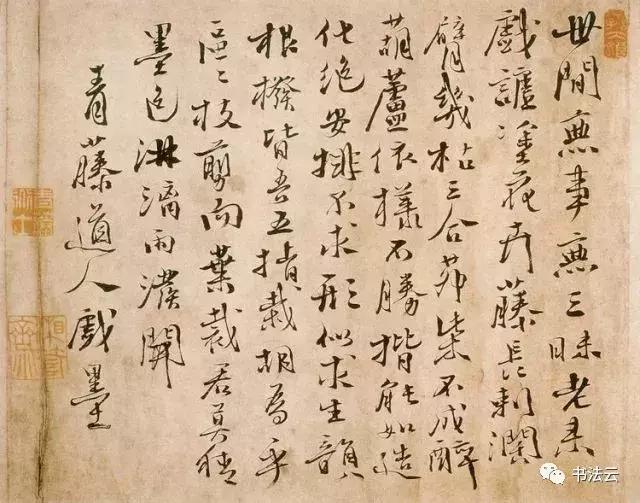 世間無事無三昧老来
戲謔塗花卉藤長刺濶
臂幾枯三合茅柴不成醉
葫蘆依樣不勝揩能如造
化絕安排不求形似求生韻
根撥皆吾五指栽胡為乎
區〻枝剪而葉裁君莫猜
墨色淋漓雨潑開
青藤道人戲墨
书法云